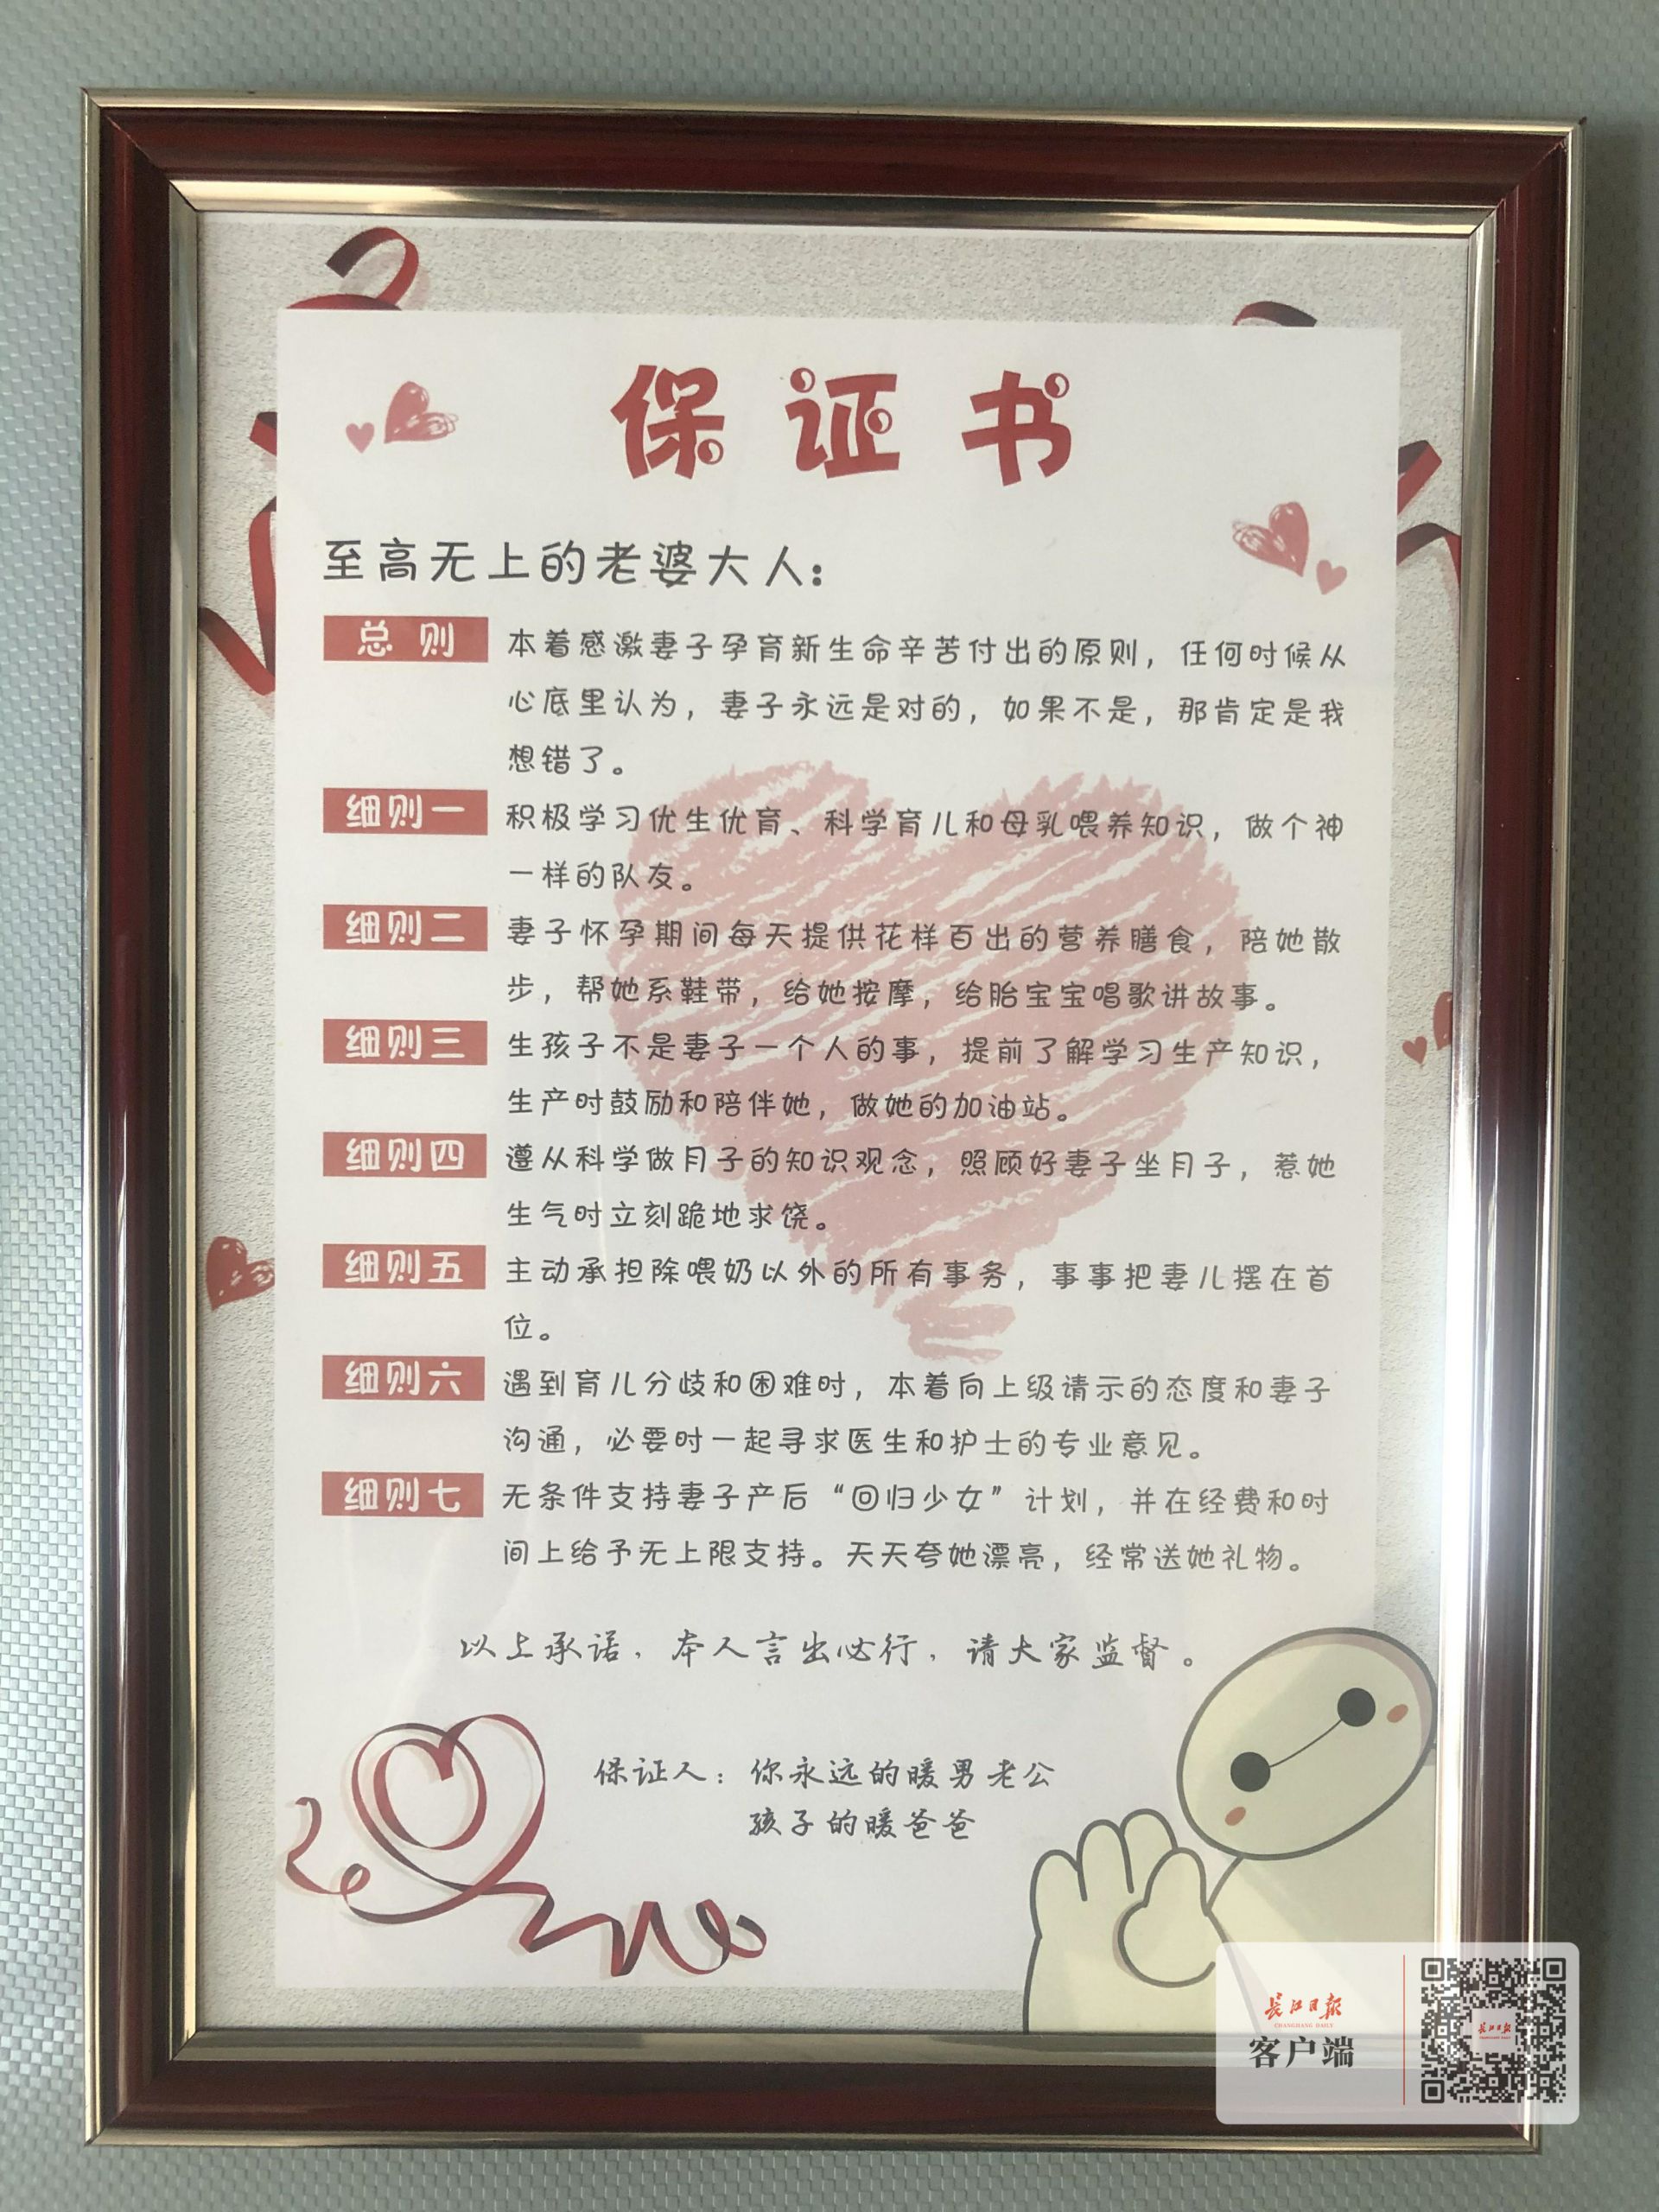 保证书
至高无上的老婆大人：
总则 本着感激妻子孕育新生命辛苦付出的原则，任何时候从
心底里认为，妻子永远是对的，如果不是，那肯定是我
想错了。
细则一 积极学习优生优育、科学育儿和母乳喂养知识，做个神
一样的队友。
细则二 妻子怀孕期间每天提供花样百出的营养膳食，陪她散
步，帮她系鞋带，给她按摩，给胎宝宝唱歌讲故事。
细则三 生孩子不是妻子一个人的事，提前了解学习生产知识，
生产时鼓励和陪伴她，做她的加油站。
细则四 遵从科学做月子的知识观念，照顾好妻子坐月子，惹她
生气时立刻跪地求饶。
细则五 主动承担除喂奶以外的所有事务，事事把妻儿摆在首
位。
细则六 遇到育儿分歧和困难时，本着向上级请示的态度和妻子
沟通，必要时一起寻求医生和护士的专业意见。
细则七 无条件支持妻子产后“回归少女”计划，并在经费和时
间上给予无上限支持。天天夸她漂亮，经常送她礼物。
以上承诺，本人言出必行，请大家监督。
保证人：你永远的暖男老公
孩子的暖爸爸
长江日报
CHANGJIANG DAILY
客户端
长江日报